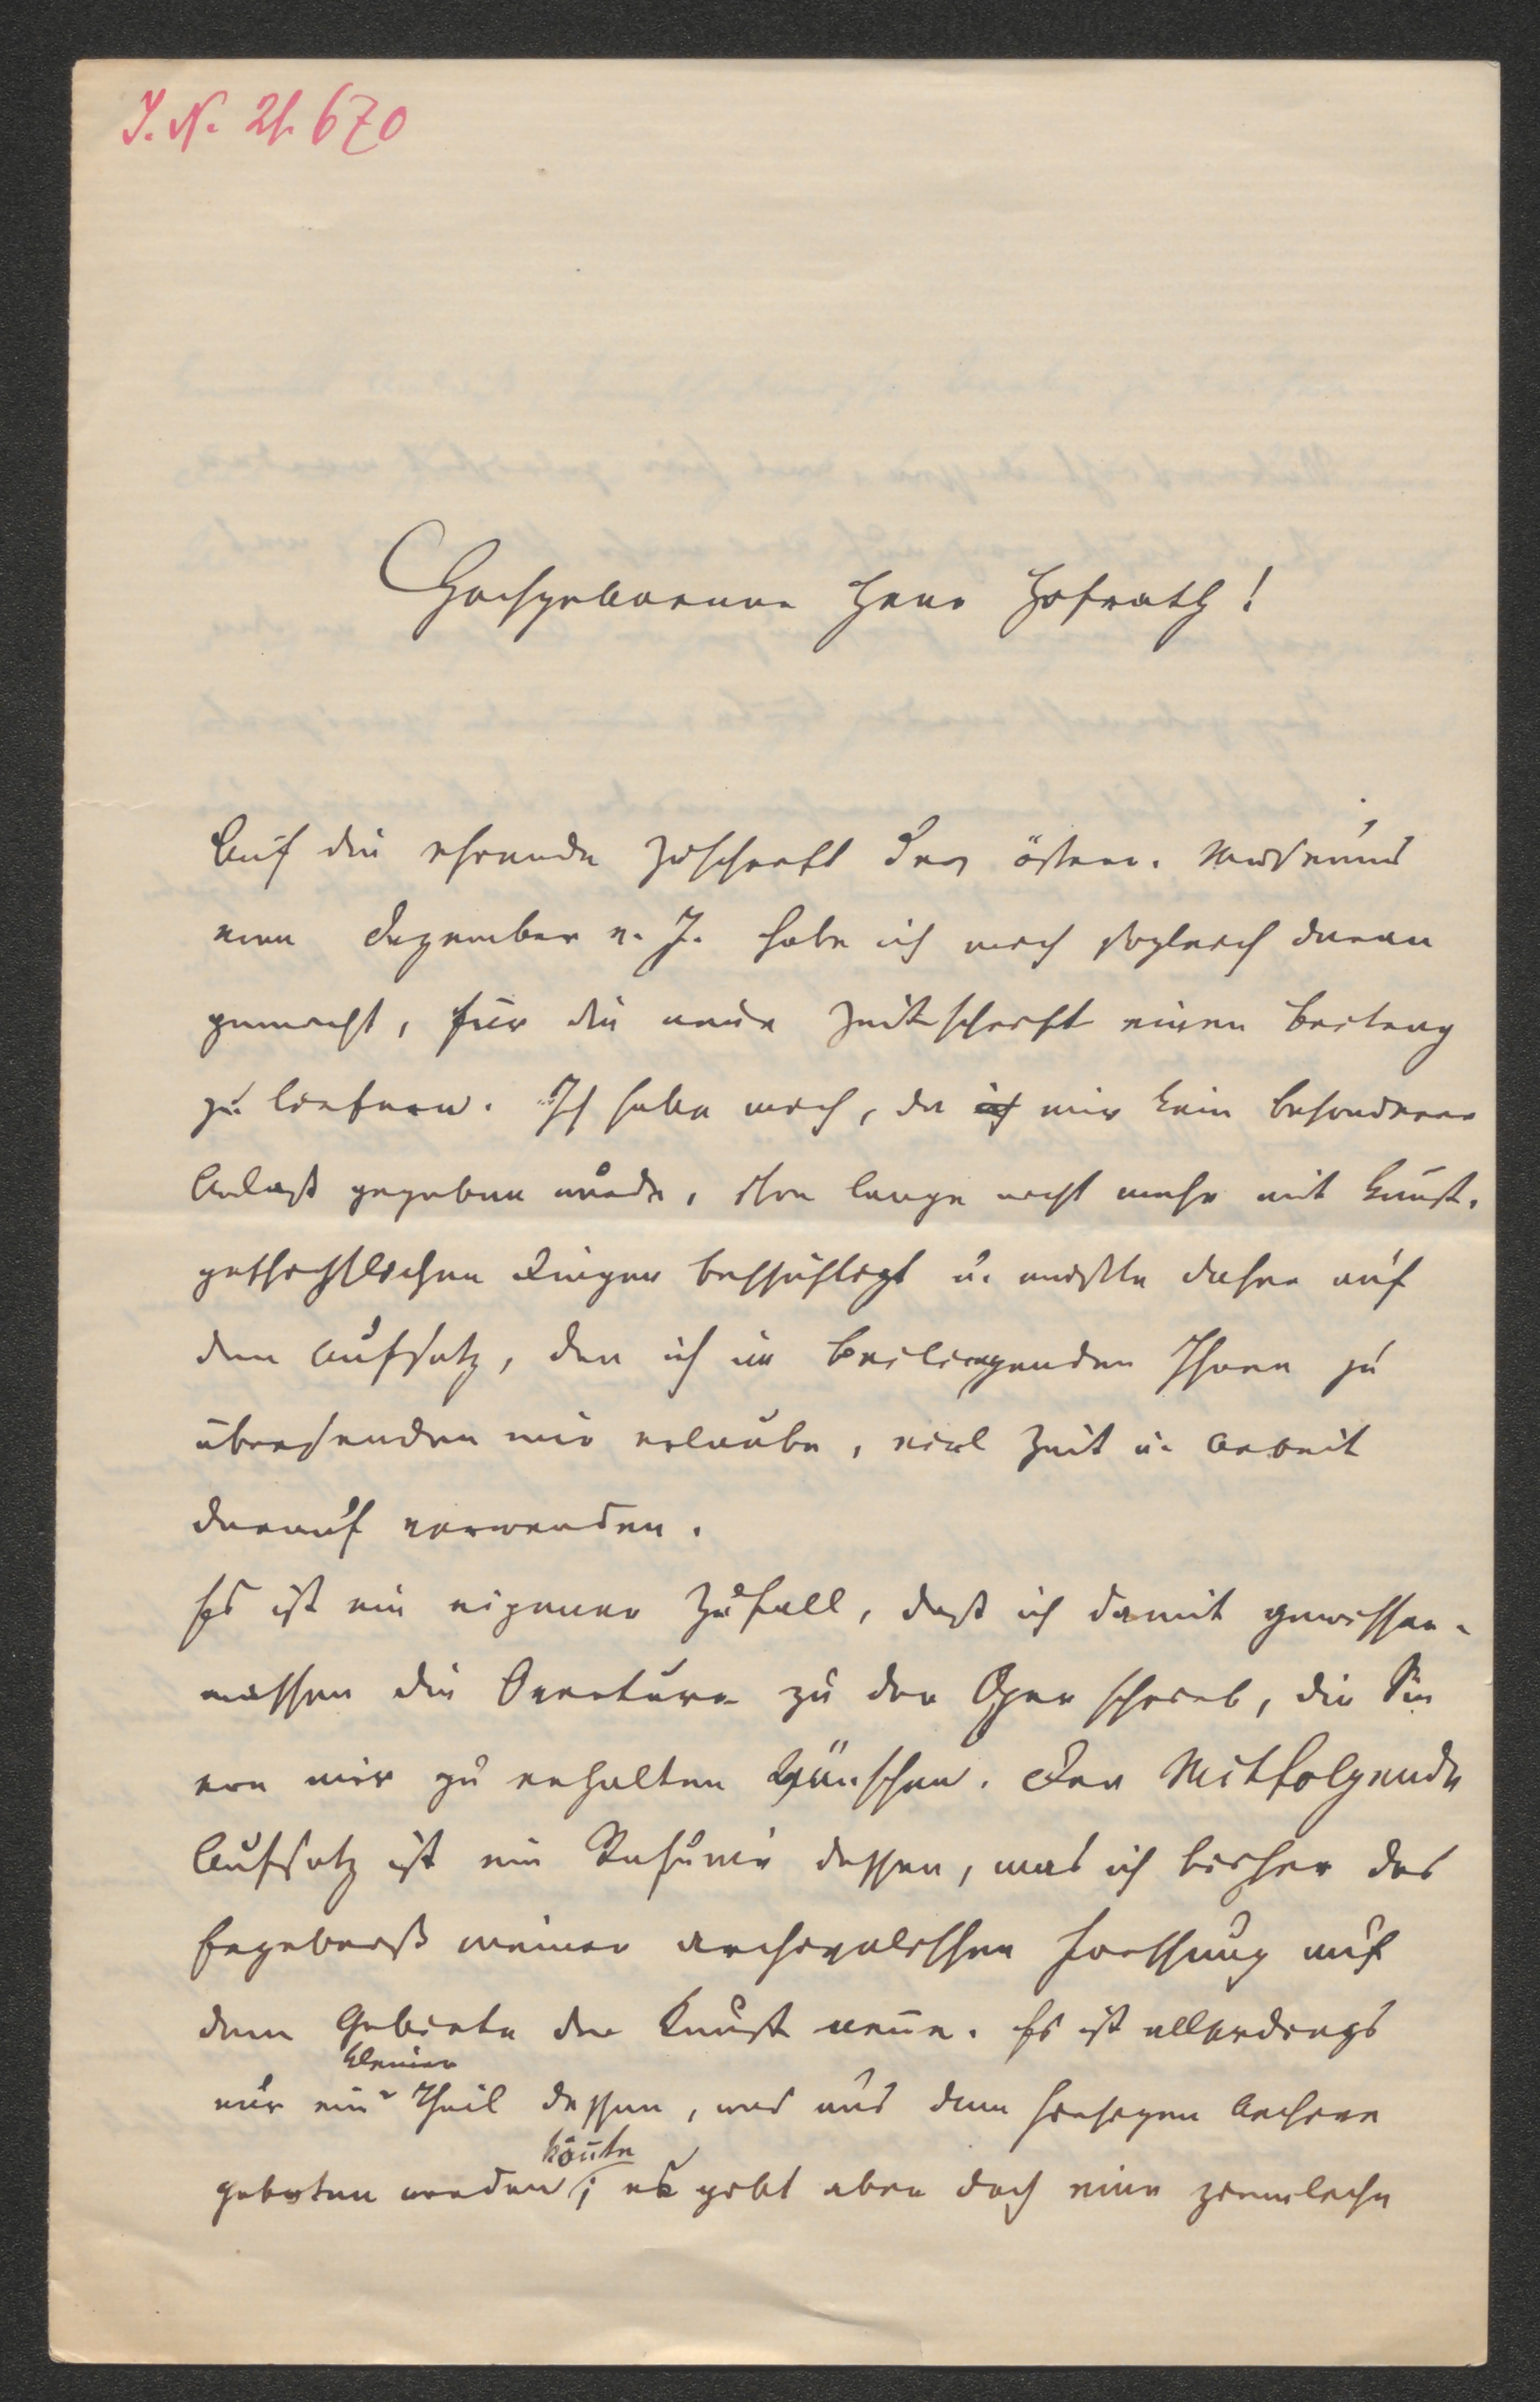 J. N. 21.670
Hochgeborener Herr Hofrath!
Auf die ehrende Zuschrift des österr. Museums
vom Dezember v. J. habe ich mich sogleich daran
gemacht, für die neue Zeitschrift einen Beitrag
zu liefern. Ich habe mich, da ich mir kein besonderer
Anlaß gegeben wurde, schon lange nicht mehr mit kunst-
geschichtlichen Dingen beschäftigt u. mußte daher auf
den Aufsatz, den ich im Beiliegenden Ihnen zu
übersenden mir erlaube, viel Zeit u. Arbeit
darauf verwenden.
Es ist ein eigener Zufall, daß ich damit gewisser-
massen die Overture zu der Oper schrieb, die Sie
von mir zu erhalten wünschen. Der Mitfolgende
Aufsatz ist ein Resumé dessen, was ich bisher das
Ergebniß meiner archivalischen Forschung auf
dem Gebiete der Kunst nenne. Es ist allerdings
kleiner
nur ein Theil dessen, was aus dem hiesigen Archive
könnte
geboten werden; es gibt aber doch eine ziemliche